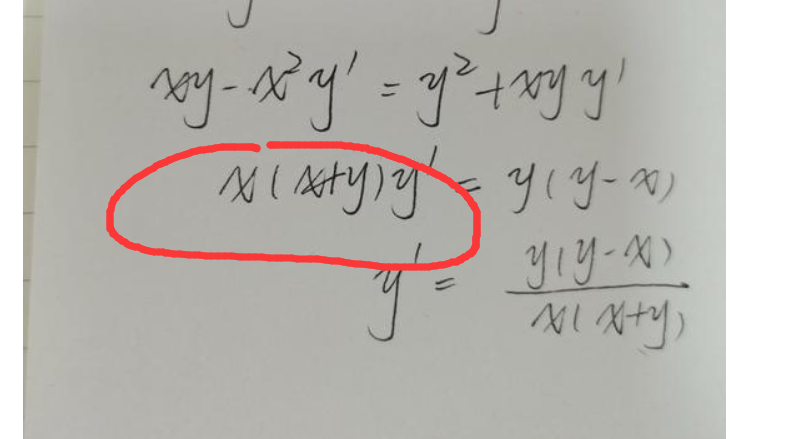 xy - x²y' = y² + xyy'
x(x+y)y' = y(y-x)
y' = y(y-x) / x(x+y)